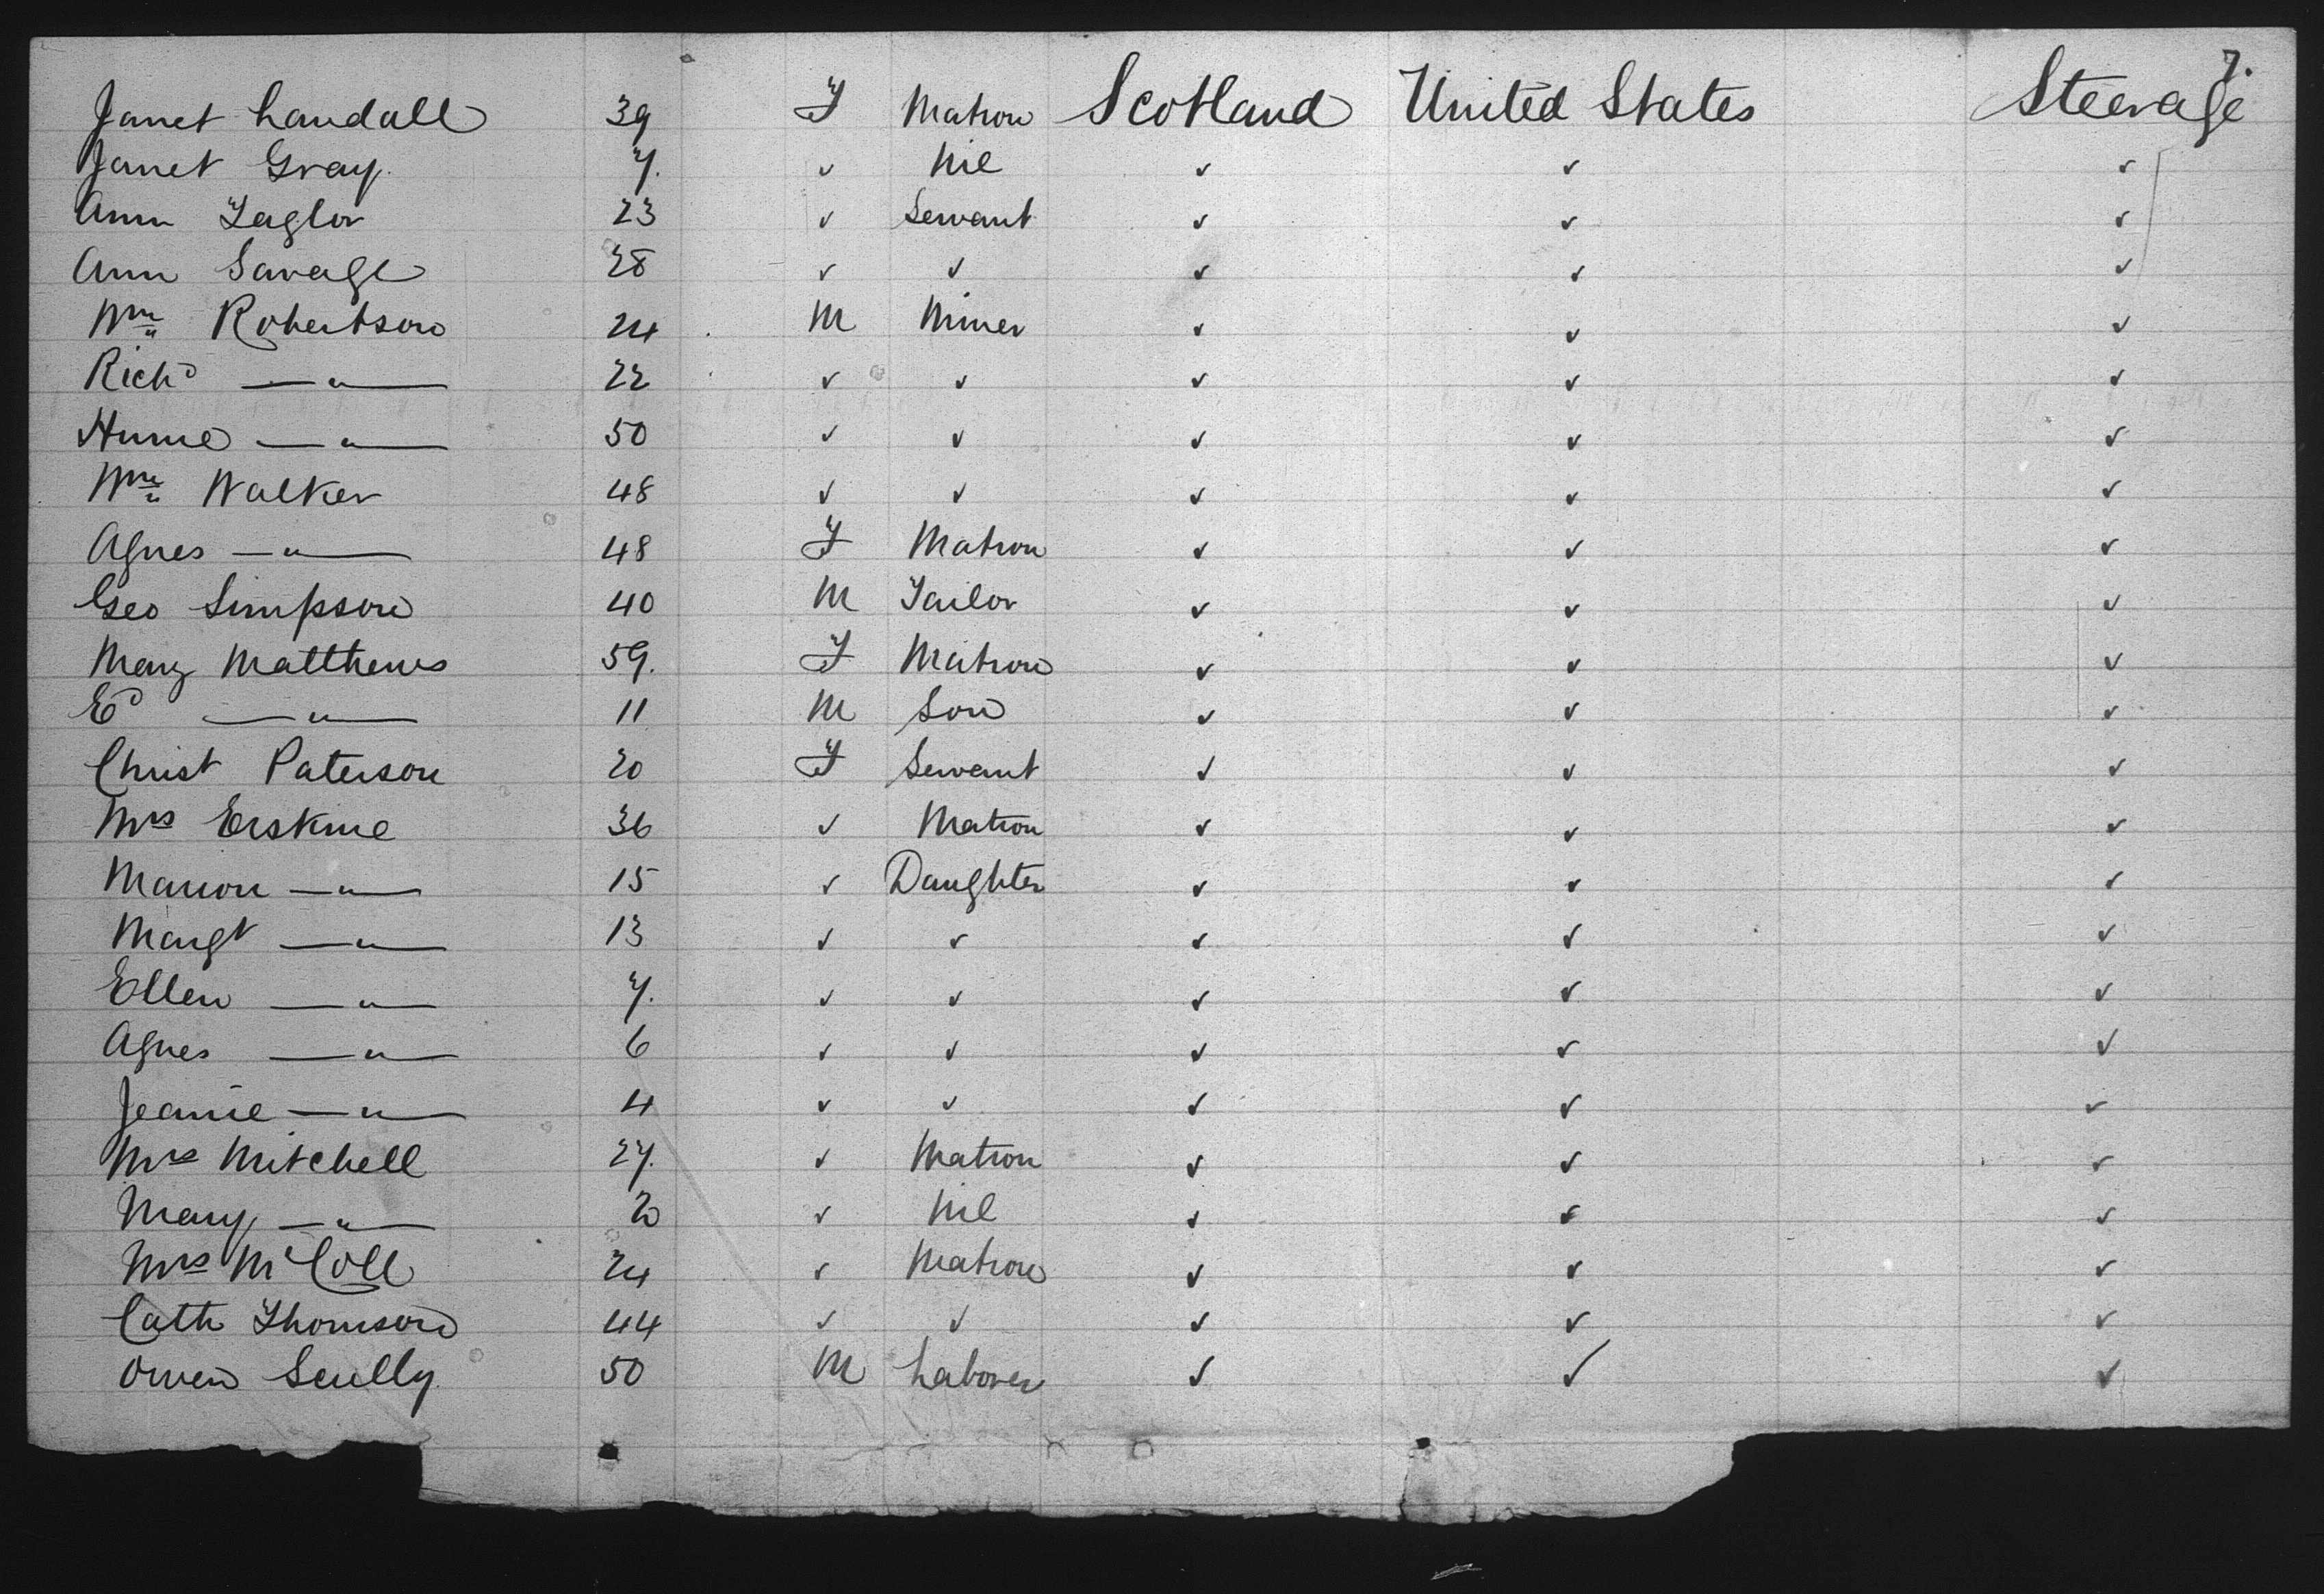 7.
Janet Landall 39 F Matron Scotland United States Steerage
Janet Gray. 7. ✓ Nil ✓ ✓ ✓
Ann Taylor 23 ✓ Servant ✓ ✓ ✓
Ann Savage 28 ✓ ✓ ✓ ✓ ✓
Wm Robertson 24 M Miner ✓ ✓ ✓
Richd —"— 22 ✓ ✓ ✓ ✓ ✓
Hume —"— 50 ✓ ✓ ✓ ✓ ✓
Wm Walker 48 ✓ ✓ ✓ ✓ ✓
Agnes —"— 48 F Matron ✓ ✓ ✓
Geo Simpson 40 M Tailor ✓ ✓ ✓
Mary Matthews 59. F Matron ✓ ✓ ✓
Ed —"— 11 M Son ✓ ✓ ✓
Christ Paterson 20 F Servant ✓ ✓ ✓
Mrs Erskine 36 ✓ Matron ✓ ✓ ✓
Marion —"— 15 ✓ Daughter ✓ ✓ ✓
Margt —"— 13 ✓ ✓ ✓ ✓ ✓
Ellen —"— 7. ✓ ✓ ✓ ✓ ✓
Agnes —"— 6 ✓ ✓ ✓ ✓ ✓
Jeanie —"— 4 ✓ ✓ ✓ ✓ ✓
Mrs Mitchell 27. ✓ Matron ✓ ✓ ✓
Mary —"— 2 ✓ Nil ✓ ✓ ✓
Mrs McColl 24 ✓ Matron ✓ ✓ ✓
Cath Thomson 44 ✓ ✓ ✓ ✓ ✓
Owen Scully. 50 M Laborer ✓ ✓ ✓